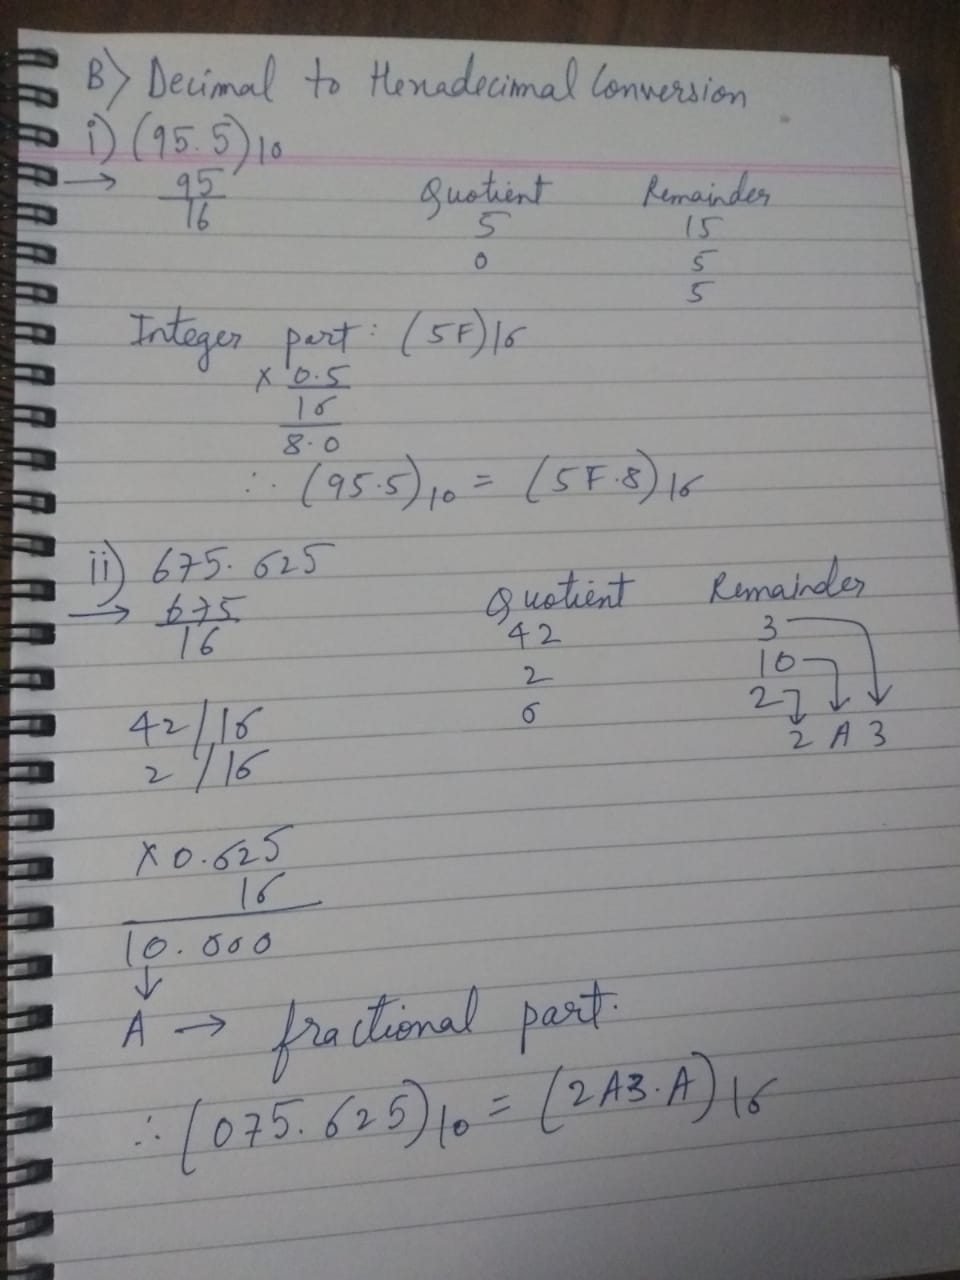 B) Decimal to Hexadecimal Conversion
i) (95.5)10
→ 95/16 Quotient Remainder
5 15
0 5
5
Integer part : (5F)16
× 0.5
16
8.0
∴ (95.5)10 = (5F.8)16
ii) 675.625
→ 675/16 Quotient Remainder
42 3
2 10
42/16 0 2
2/16 2 A 3
× 0.625
16
10.000
↓
A → fractional part.
∴ (075.625)10 = (2A3.A)16